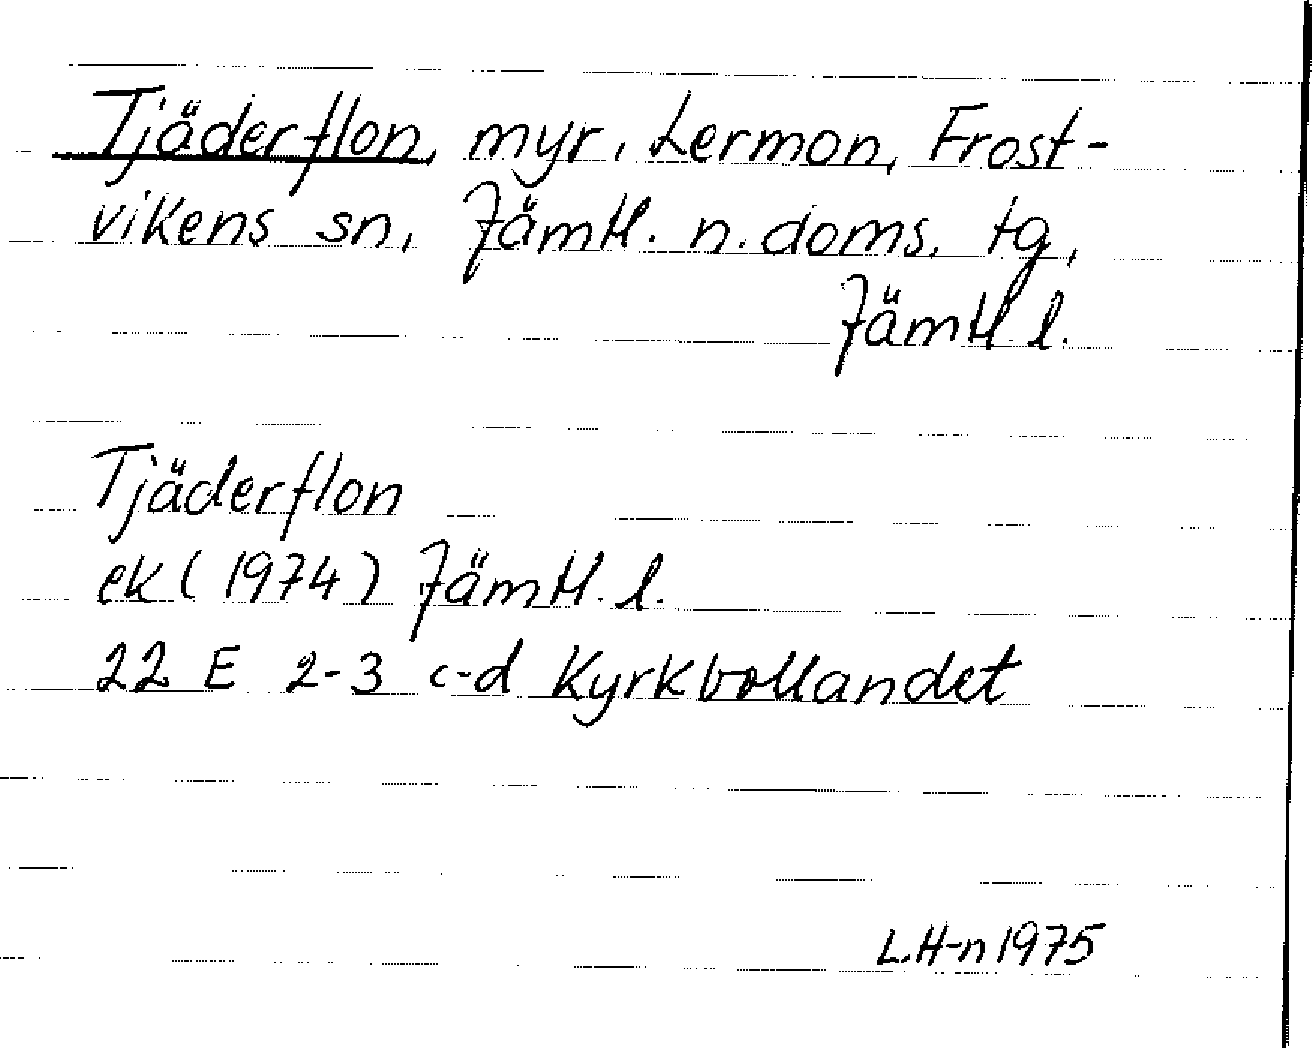 Tjäderflon, myr, Lermon, Frost-
vikens sn, Jämtl. n. doms. tg,
Jämtl l.
Tjäderflon
ek (1974) Jämtl. l.
22 E 2-3 c-d Kyrkbollandet
L.H-n 1975